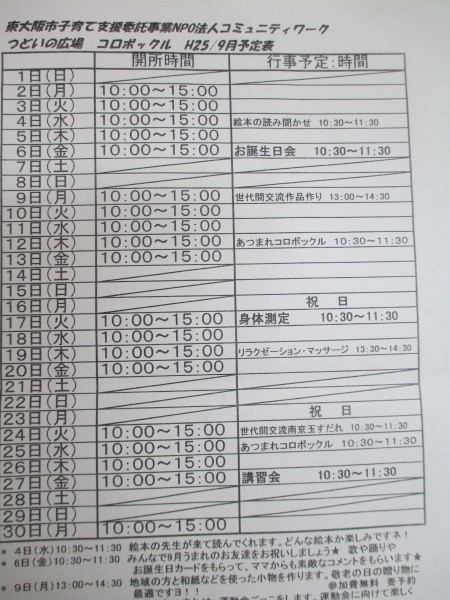 東大阪市子育て支援委託事業NPO法人コミュニティワーク
つどいの広場　コロボックル　H25/9月予定表
開所時間　行事予定:時間
1日(日)
2日(月)　10:00～15:00
3日(火)　10:00～15:00
4日(水)　10:00～15:00　絵本の読み聞かせ　10:30～11:30
5日(木)　10:00～15:00
6日(金)　10:00～15:00　お誕生日会　10:30～11:30
7日(土)
8日(日)
9日(月)　10:00～15:00　世代間交流作品作り　13:00～14:30
10日(火)　10:00～15:00
11日(水)　10:00～15:00
12日(木)　10:00～15:00　あつまれコロボックル　10:30～11:30
13日(金)　10:00～15:00
14日(土)
15日(日)
16日(月)　祝　日
17日(火)　10:00～15:00　身体測定　10:30～11:30
18日(水)　10:00～15:00
19日(木)　10:00～15:00　リラクゼーション・マッサージ　13:30～14:30
20日(金)　10:00～15:00
21日(土)
22日(日)
23日(月)　祝　日
24日(火)　10:00～15:00　世代間交流南京玉すだれ　10:30～11:30
25日(水)　10:00～15:00　あつまれコロボックル　10:30～11:30
26日(木)　10:00～15:00
27日(金)　10:00～15:00　講習会　10:30～11:30
28日(土)
29日(日)
30日(月)　10:00～15:00
* 4日(水)10:30～11:30　絵本の先生が来て読んでくれます。どんな絵本か楽しみですネ!
* 6日(金)10:30～11:30　みんなで9月うまれのお友達をお祝いしましょう★　歌や踊りや
お誕生日カードをもらって、ママからも素敵なコメントをもらいます★
* 9日(月)13:00～14:30　地域の方と和紙などを使った小物を作ります。敬老の日の贈り物に
最適ですヨ!!　参加費無料　要予約